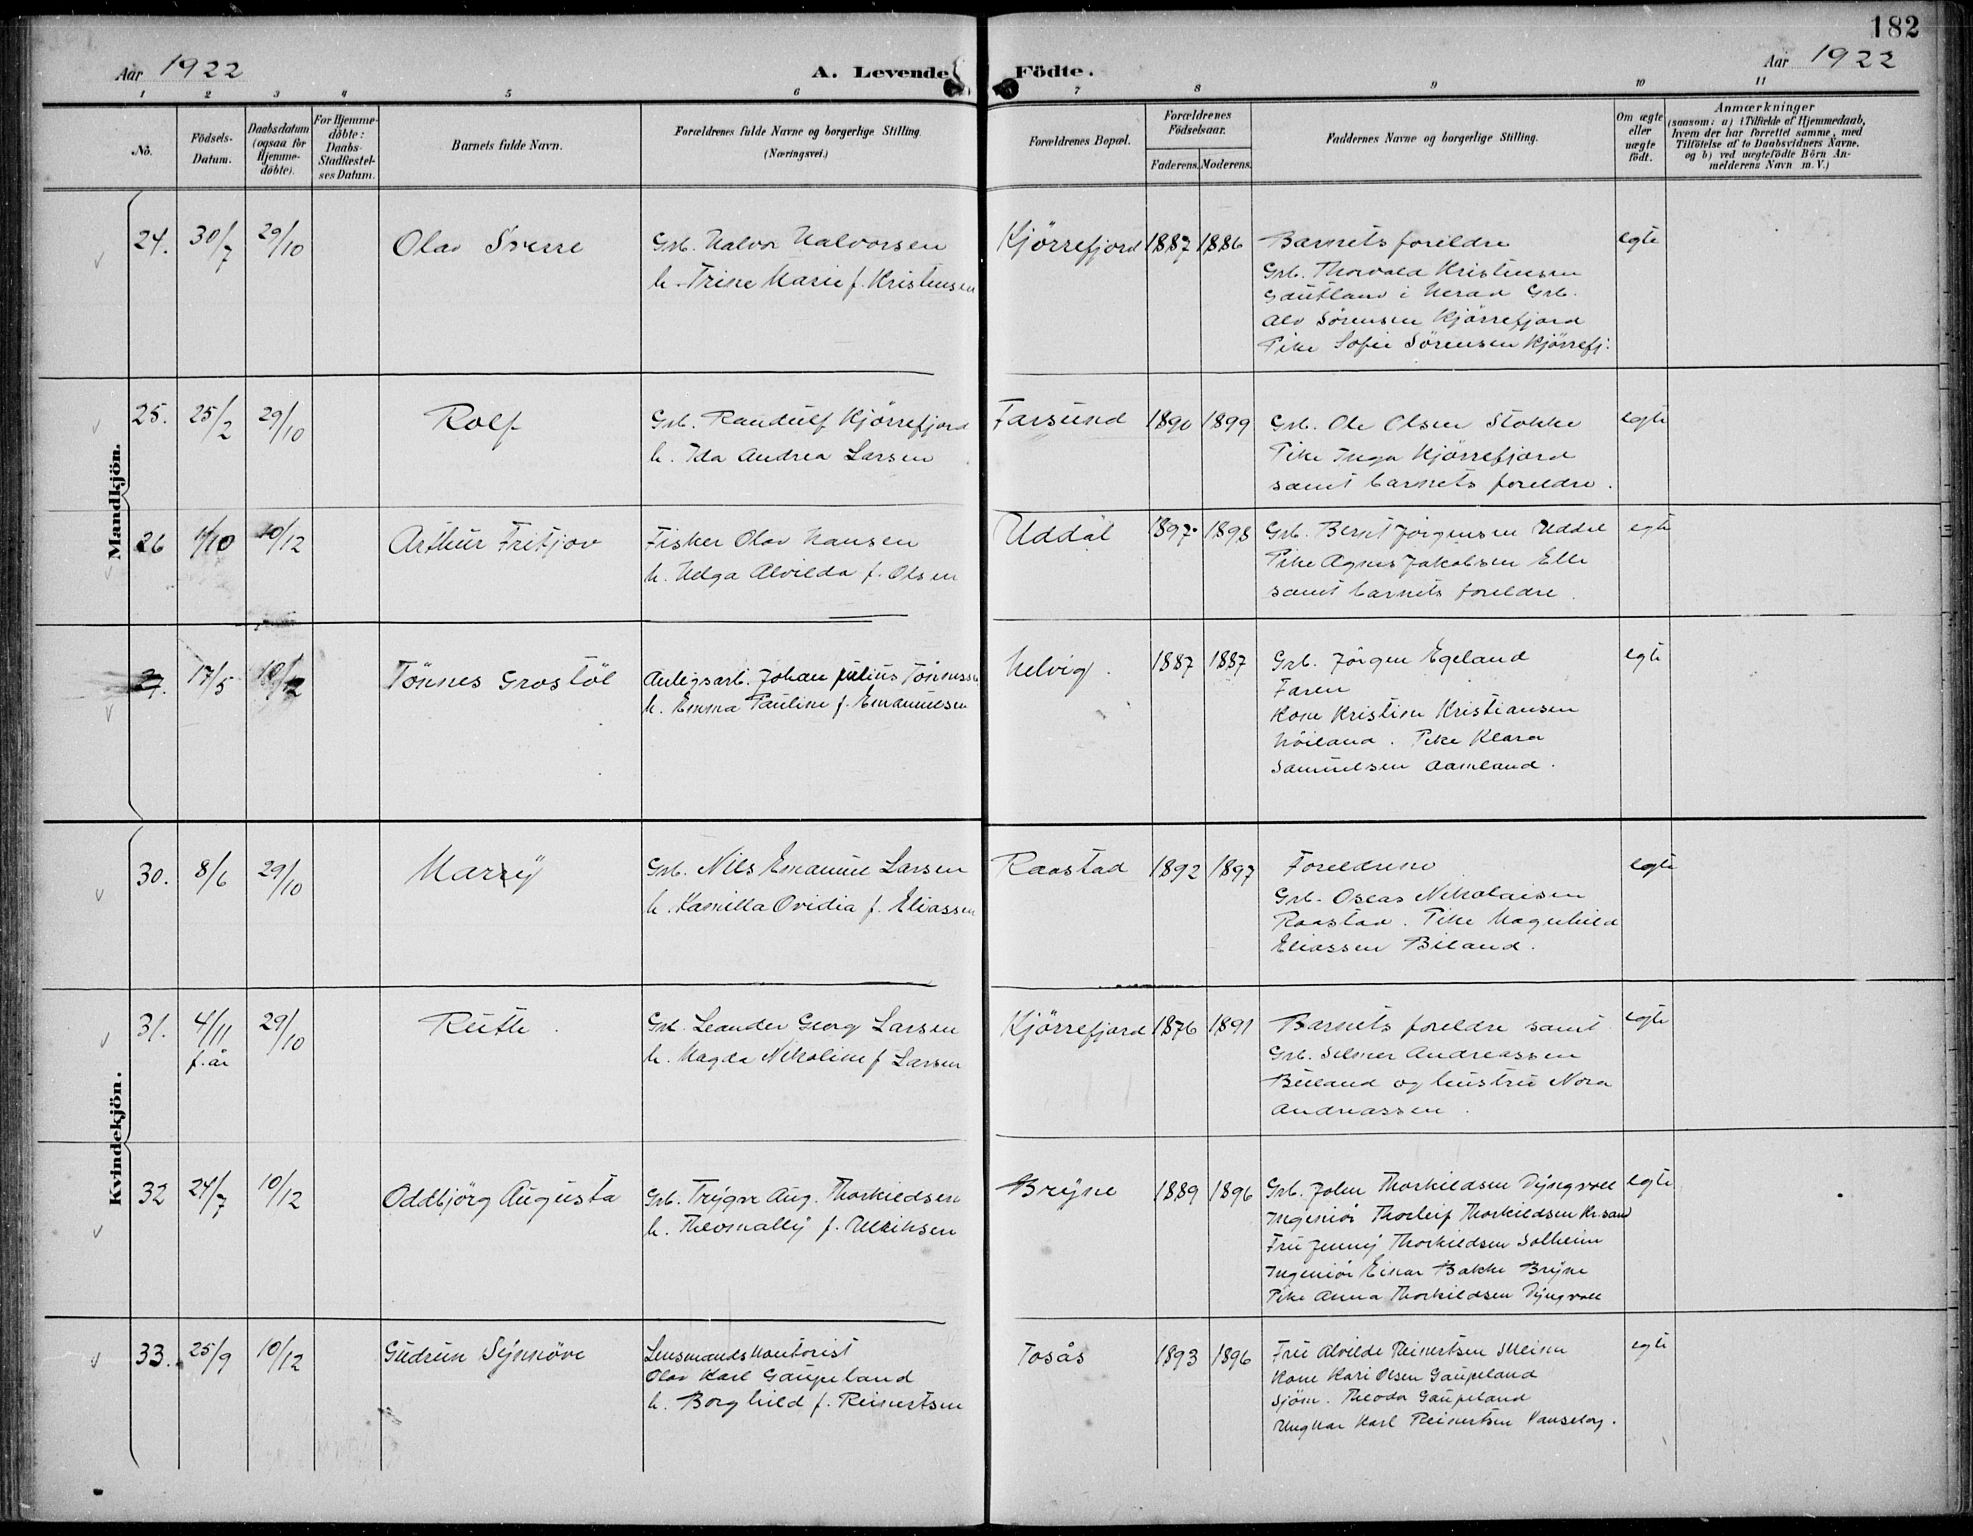 182
Aar 1922
A. Levende Födte.
Aar 1922
1 2 3 4 5 6 7 8 9 10 11
No.
Födsels-Datum.
Daabsdatum (ogsaa for Hjemme-döbte).
For Hjemme-döbte: Daabs-Stadfæstel-ses Datum.
Barnets fulde Navn.
Forældrenes fulde Navne og borgerlige Stilling.
(Næringsvei.)
Forældrenes Bopæl.
Forældrenes Födselsaar.
Faderens. Moderens.
Faddernes Navne og borgerlige Stilling.
Om ægte eller uægte födt.
Anmærkninger
(saasom: a) i Tilfælde af Hjemmedaab,
hvem der har forrettet samme, med
Tilföielse af to Daabsvidners Navne,
og b) ved uægtefödte Börn An-
melderens Navn m. V.)
Mandkjön.
24. 30/7 29/10 Olav Sverre
Grb. Halvor Halvorsen
h. Trine Marie f. Kristensen
Kjørrefjord 1887 1886
Barnets foreldre
Grb. Thorvald Kristensen
Gautland i Herad Grb.
Alv Sørensen Kjørrefjord
Pike Sofie Sørensen Kjørrefj.
egte
25. 25/2 29/10 Rolf
Grb. Randulf Kjørrefjord
h. Ida Andrea Larsen
Farsund 1890 1899
Grb. Ole Olsen Stokke
Pike Inga Kjørrefjord
samt barnets foreldre.
egte
26 1/10 10/12 Arthur Fritjov
Fisker Olav Hansen
h. Helga Alvilda f. Olsen
Uddal 1897 1898
Grb. Bernt Jørgensen Uddal
Pike Agnes Jakobsen Elle
samt barnets foreldre.
egte
27. 17/5 10/12 Tönnes Grostöl
Anlegsarb. Johan Julius Tönnessen
h. Emma Pauline f. Emanuelsen
Helvig. 1887 1887
Grb. Jörgen Egeland
Faren
Kone Kristine Kristiansen
Höiland. Pike Klara
Samuelsen Aamland.
egte
Kvindekjön.
30. 8/6 29/10 Marry
Grb. Nils Emanuel Larsen
h. Kamilla Ovidia f. Eliassen
Raastad 1892 1897
Foreldrene
Grb. Oscar Nikolaisen
Raastad. Pike Magnhild
Eliassen Biland.
egte
31. 4/11 f. år 29/10 Ruth.
Grb. Leander Georg Larsen
h. Magda Nikoline f Larsen
Kjørrefjord 1876 1891
Barnets foreldre samt
Grb. Selmer Andreassen
Buland og hustru Nora
Andreassen.
egte
32 24/7 10/12 Oddbjörg Augusta
Grb. Trygve Aug. Thorkildsen
h. Theomally f. Ulriksen
Bryne 1889 1896
Grb. John Thorkildsen Dyngvoll
Ingeniör Thorleif Thorkildsen Kr.sand
Fru Jenny Thorkildsen Solheim
Ingeniör Einar Bakke Bryne
Pike Anna Thorkildsen Dyngvoll
egte
33. 25/9 10/12 Gudrun Synnöve
Lensmandskontorist
Olav Karl Gaupeland
h. Borghild f. Reinertsen
Tosås 1893 1896
Fru Alvilde Reinertsen
Kone Kari Olsen Gaupeland
Sjöm. Theodor Gaupeland
Ungkar Karl Reinertsen
egte